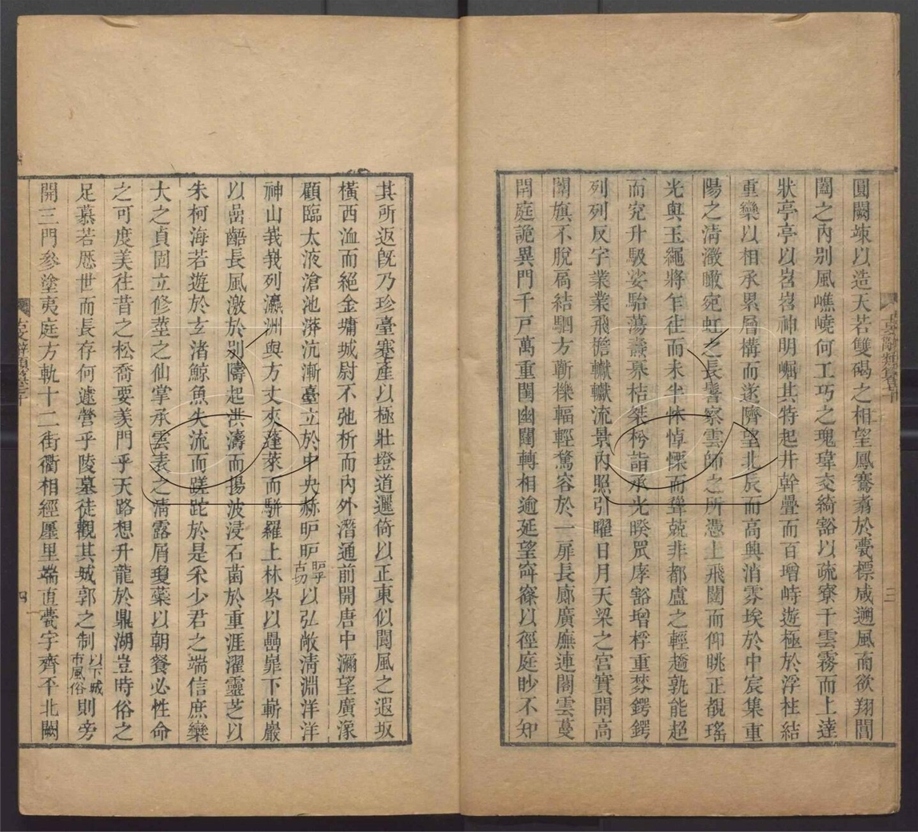 圓闕竦以造天若雙碣之相望鳳騫翥於甍標咸遡風而欲翔閶
闔之內別風嶕嶢何工巧之瑰瑋交綺豁以疏寮干雲霧而上達
狀亭亭以岧岧神明崛其特起井幹疊而百增跱遊極於浮柱結
重欒以相承累層構而遂隮望北辰而高興消雰埃於中宸集重
陽之清瀓瞰宛虹之長鬐察雲師之所憑上飛闥而仰眺正覩瑤
光與玉繩將乍往而未半怵悼慄而聳兢非都盧之輕趫孰能超
而究升馺娑駘蕩燾奡桔桀枍詣承光睽罛庨豁增桴重棼鍔鍔
列列反宇業業飛檐轍轍流景內照引曜日月天梁之宮實開高
闈旗不脫扃結駟方蘄櫟輻輕騖容於一扉長廊廣廡連閣雲蔓
閈庭詭異門千戸萬重閨幽闥轉相逾延望窱以徑庭眇不知
其所返旣乃珍臺蹇產以極壯墱道邐倚以正東似閬風之遐坂
橫西洫而絕金墉城尉不弛柝而內外潛通前開唐中彌望廣潒
顧臨太液滄池漭沆漸臺立於中央赫昈昈昈乎古切以弘敞清淵洋洋
神山峩峩列瀛洲與方丈夾蓬萊而駢羅上林岑以壘嶵下嶄巖
以嵒齬長風激於別隯起洪濤而揚波浸石菌於重涯濯靈芝以
朱柯海若遊於玄渚鯨魚失流而蹉跎於是采少君之端信庶欒
大之貞固立修莖之仙掌承雲表之清露屑瓊蘂以朝餐必性命
之可度美往昔之松喬要羡門乎天路想升龍於鼎湖豈時俗之
足慕若歷世而長存何遽營乎陵墓徒觀其城郭之制以下城市風俗則旁
開三門參塗夷庭方軌十二街衢相經廛里端直甍宇齊平北闕
三
四